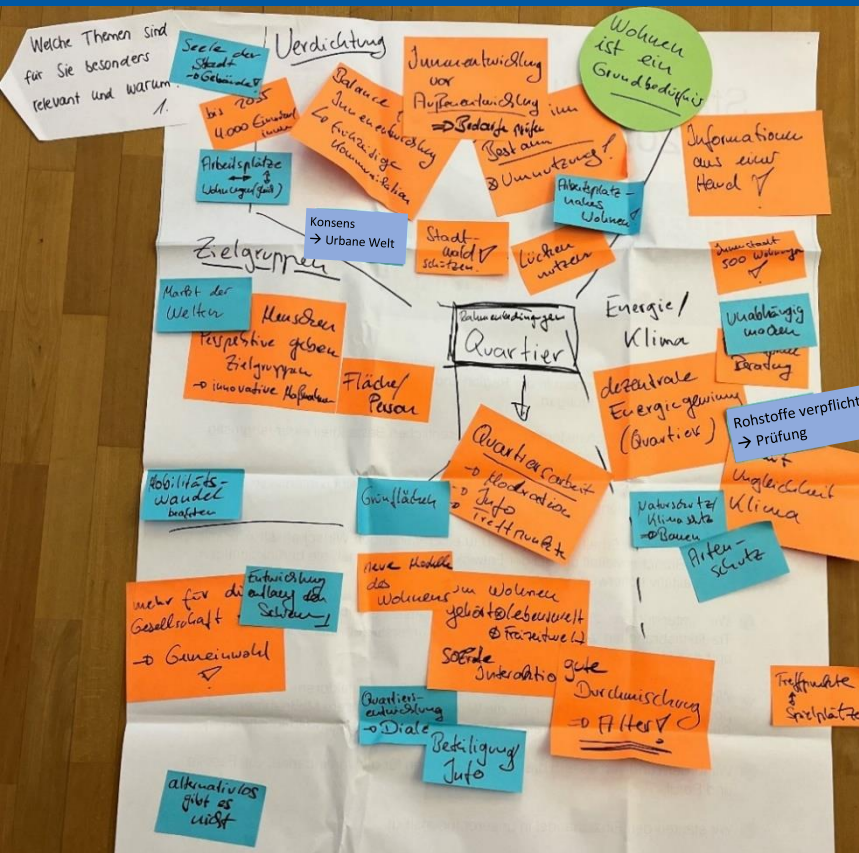 Welche Themen sind
für Sie besonders
relevant und warum
1.
Seele der
Stadt
→ Gebäude!
Verdichtung
bis 2035
4.000 Einwohner
Balance
Innenentwicklung
↳ frühzeitige
Kommunikation
Innenentwicklung
vor
Außenentwicklung
⇒ Bedarfe prüfen
im
Bestand
Umnutzung!
Wohnen
ist ein
Grundbedürfnis
Informationen
aus einer
Hand
Arbeitsplätze
Wohnungen
Arbeitsplatz-
nahes
Wohnen
Konsens
→ Urbane Welt
Stadt-
wald
schützen
Lücken
nutzen
Innenstadt
500 Wohnungen
Zielgruppen
Markt der
Welten
Menschen
Perspektive geben
Zielgruppen
→ innovative Maßnahmen
Fläche/
Person
Rahmenbedingungen
Quartier
Energie/
Klima
Unabhängig
machen
Beratung
dezentrale
Energiegewinnung
(Quartier)
Rohstoffe verpflicht
→ Prüfung
Ungleichheit
Klima
Quartiersarbeit
→ Moderation
→ Info
→ Treffpunkte
Mobilitäts-
wandel
Grünflächen
Naturschutz/
Klimaschutz
⇒ Bauen
Arten-
schutz
mehr für die
Gesellschaft
→ Gemeinwohl
Entwicklung
entlang der
Schiene
neue Modelle
des
Wohnens
zum Wohnen
gehört Lebenswelt
Freizeitwelt
soziale
Interaktion
gute
Durchmischung
⇒ Alter
Treffpunkte
Spielplätze
Quartiers-
entwicklung
→ Dialog
Beteiligung
Info
alternativlos
gibt es
nicht